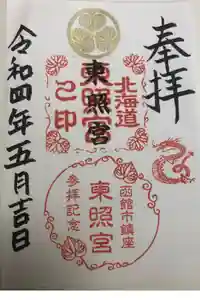 奉拝
北海道
東照宮
東照宮
己印
函館市鎮座
東照宮
参拝記念
令和四年五月吉日